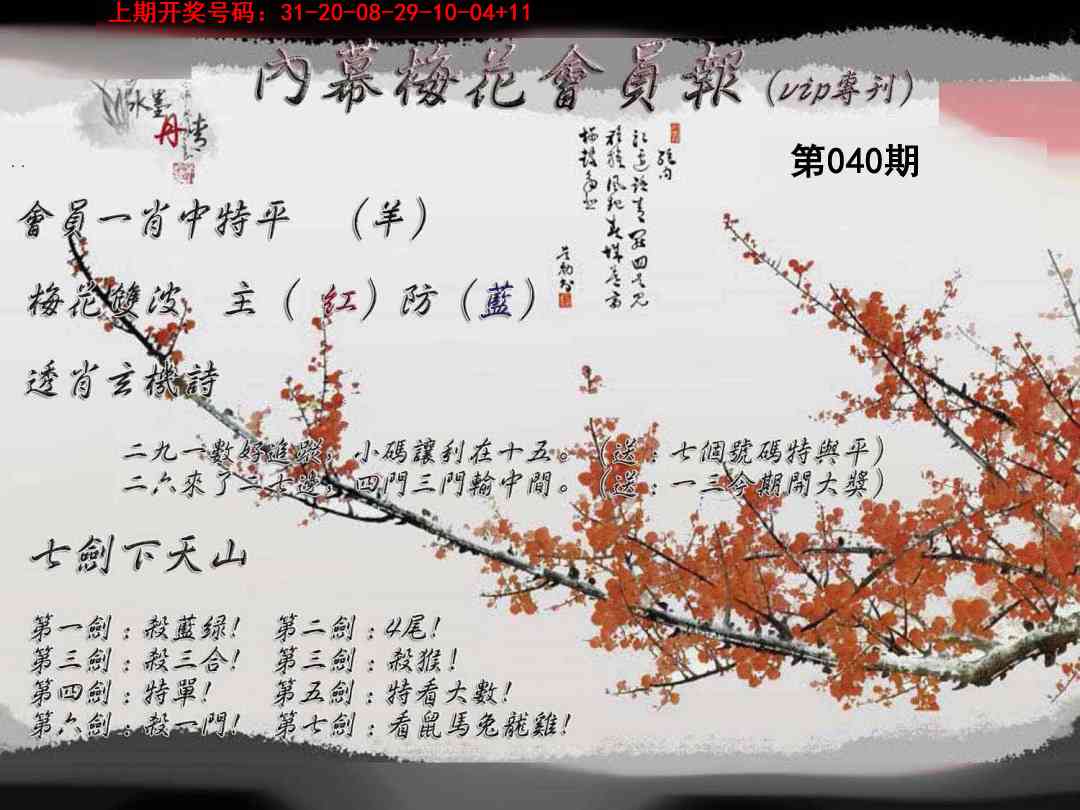 上期开奖号码：31-20-08-29-10-04+11
內幕梅花會員報（vip專刊）
水墨
丹情
第040期
會員一肖中特平 （羊）
梅花雙波 主（紅）防（藍）
透肖玄機詩
二九一數好追蹤，小碼讓利在十五。（送：七個號碼特與平）
二六來了二七邊，四門三門輸中間。（送：一三今期開大獎）
七劍下天山
第一劍：殺藍绿！ 第二劍：4尾！
第三劍：殺三合！ 第三劍：殺猴！
第四劍：特單！ 第五劍：特看大數！
第六劍：殺一門！ 第七劍：看鼠馬兔龍雞！